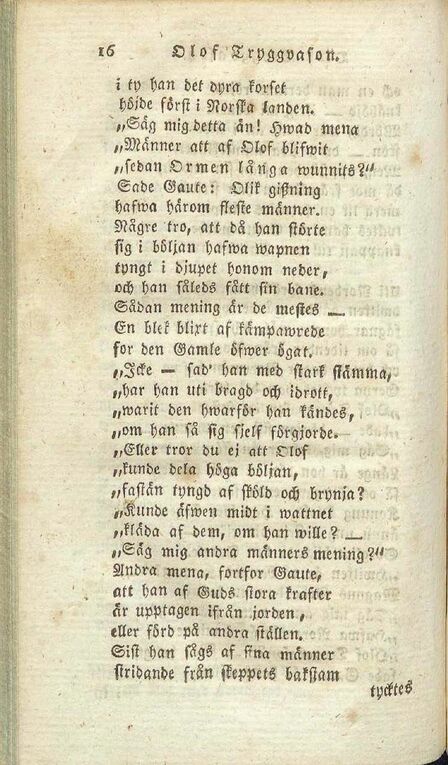 16 Olof Tryggvason.
i ty han det dyra korset
höjde först i Norska landen.
„Säg mig detta än! Hwad mena
„Männer att af Olof blifwit
„sedan Ormen långa wunnits?“
Sade Gaute: Olik gißning
hafwa härom fleste männer.
Någre tro, att då han störte
sig i böljan hafwa wapnen
tyngt i djupet honom neder,
och han således fått sin bane.
Sådan mening är de mestes —
En blek blixt af kämpawrede
for den Gamle öfwer ögat.
„Icke — sad' han med stark stämma,
„har han uti bragd och idrott,
„warit den hwarför han kändes,
„om han så sig sjelf förgjorde.
„Eller tror du ej att Olof
„kunde dela höga böljan,
„fastän tyngd af sköld och brynja?
„Kunde äfwen midt i wattnet
„kläda af dem, om han wille? —
„Säg mig andra männers mening?“
Andra mena, fortfor Gaute,
att han af Guds stora krafter
är upptagen ifrån jorden,
eller förd på andra ställen.
Sist han sågs af sina männer
stridande från skeppets bakstam
tycktes